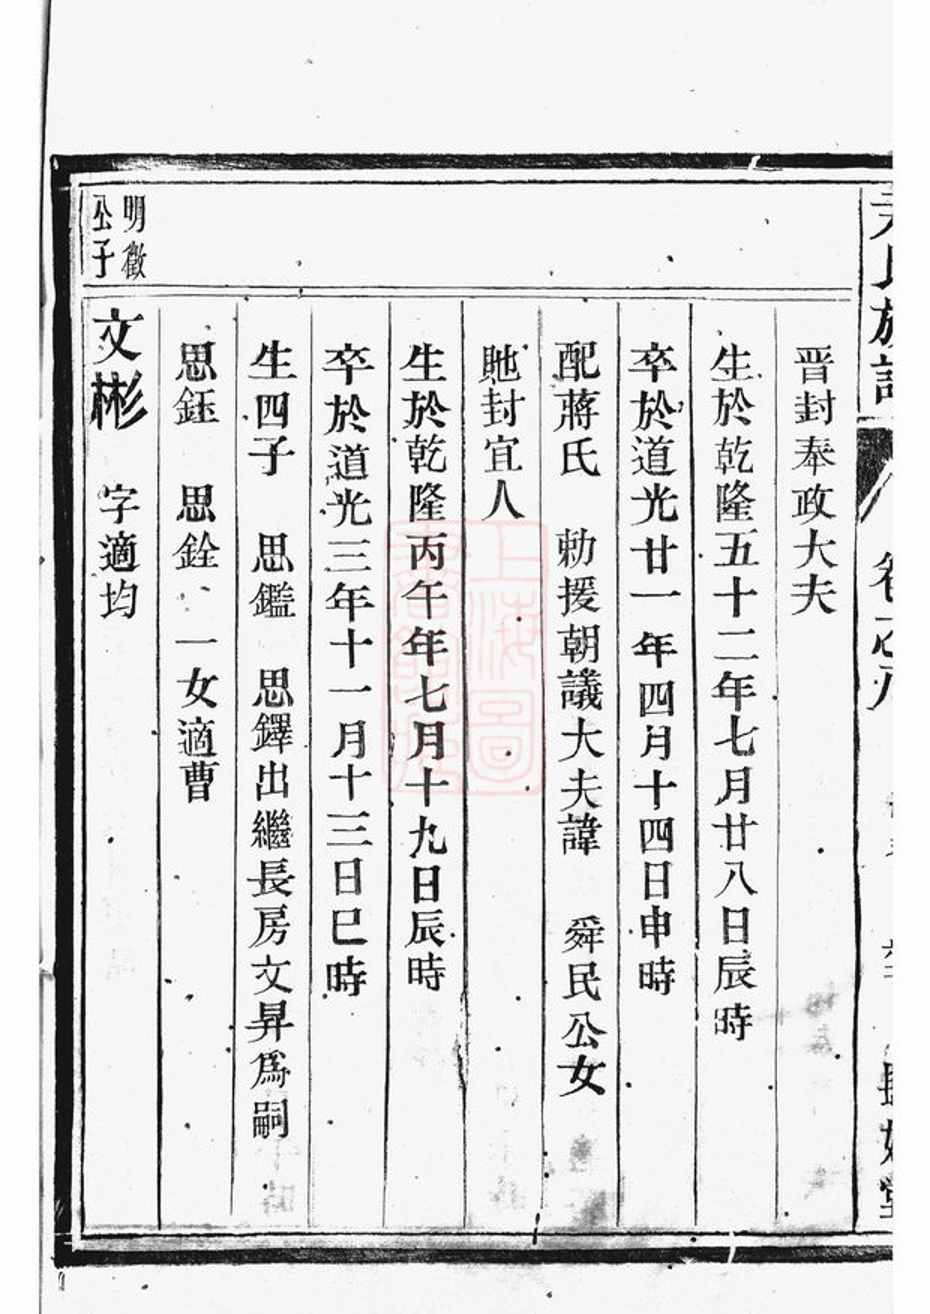 晋封奉政大夫
生於乾隆五十二年七月廿八日辰時
卒於道光廿一年四月十四日申時
配蔣氏 勅援朝議大夫諱 舜民公女
貤封宜人
生於乾隆丙午年七月十九日辰時
卒於道光三年十一月十三日巳時
生四子 思鑑 思鐸出繼長房文昇爲嗣
思鈺 思銓 一女適曹
明徵
公子
文彬 字適均
上海圖